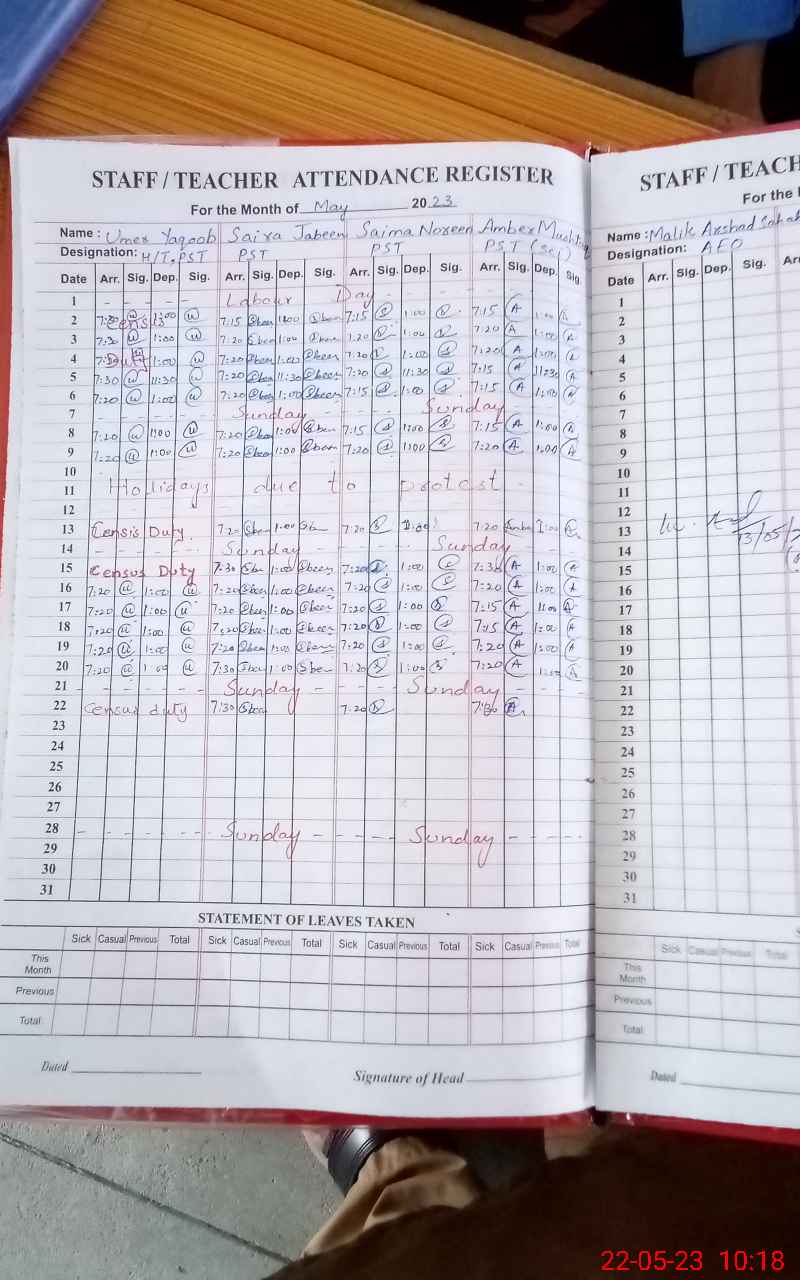 STAFF / TEACHER ATTENDANCE REGISTER
For the Month of May 2023
Name : Umer Yaqoob Saira Jabeen Saima Noreen Amber
Designation: H/T, PST PST PST PST (Sci)
Date Arr. Sig. Dep. Sig. Arr. Sig. Dep. Sig. Arr. Sig. Dep. Sig. Arr. Sig. Dep. Sig.
1 Labour Day
2 1:00 7:15 1:00 7:15 1:00 7:15 A 1:00 A
3 1:00 7:20 1:00 7:20 1:00 7:20 A 1:00 A
4 Duty 1:00 7:20 1:00 7:20 1:00 7:20 A 1:00
5 7:30 11:30 7:20 11:30 7:20 11:30 7:15 A 11:30 A
6 7:20 1:00 7:20 1:00 7:15 1:00 7:15 A 1:00 A
7 Sunday Sunday
8 7:20 1:00 7:20 1:00 7:15 1:00 7:15 A 1:00 A
9 7:20 1:00 7:20 1:00 7:20 1:00 7:20 A 1:00 A
10
11 Holidays due to protest
12
13 Censis Duty. 7:20 1:00 7:20 1:00 7:20 1:00
14 Sunday Sunday
15 Census Duty 7:30 1:00 7:20 1:00 7:30 A 1:00 A
16 7:20 1:00 7:20 1:00 7:20 1:00 7:20 A 1:00
17 7:20 1:00 7:20 1:00 7:20 1:00 7:15 A 1:00 A
18 7:20 1:00 7:20 1:00 7:20 1:00 7:15 A 1:00 A
19 7:20 1:00 7:20 1:00 7:20 1:00 7:20 A 1:00 A
20 7:20 1:00 7:30 1:00 7:20 1:00 7:20 A 1:00 A
21 Sunday Sunday
22 Census duty 7:30 7:20 7:30 A
23
24
25
26
27
28 Sunday Sunday
29
30
31
STATEMENT OF LEAVES TAKEN
Sick Casual Previous Total Sick Casual Previous Total Sick Casual Previous Total Sick Casual Previous Total
This Month
Previous
Total
Dated Signature of Head
STAFF / TEACH
For the
Name : Malik Arshad
Designation: AEO
Date Arr. Sig. Dep. Sig. Arr
1
2
3
4
5
6
7
8
9
10
11
12
13 13/05/
14
15
16
17
18
19
20
21
22
23
24
25
26
27
28
29
30
31
Sick Casual Previous Total
This Month
Previous
Total
Dated
22-05-23 10:18